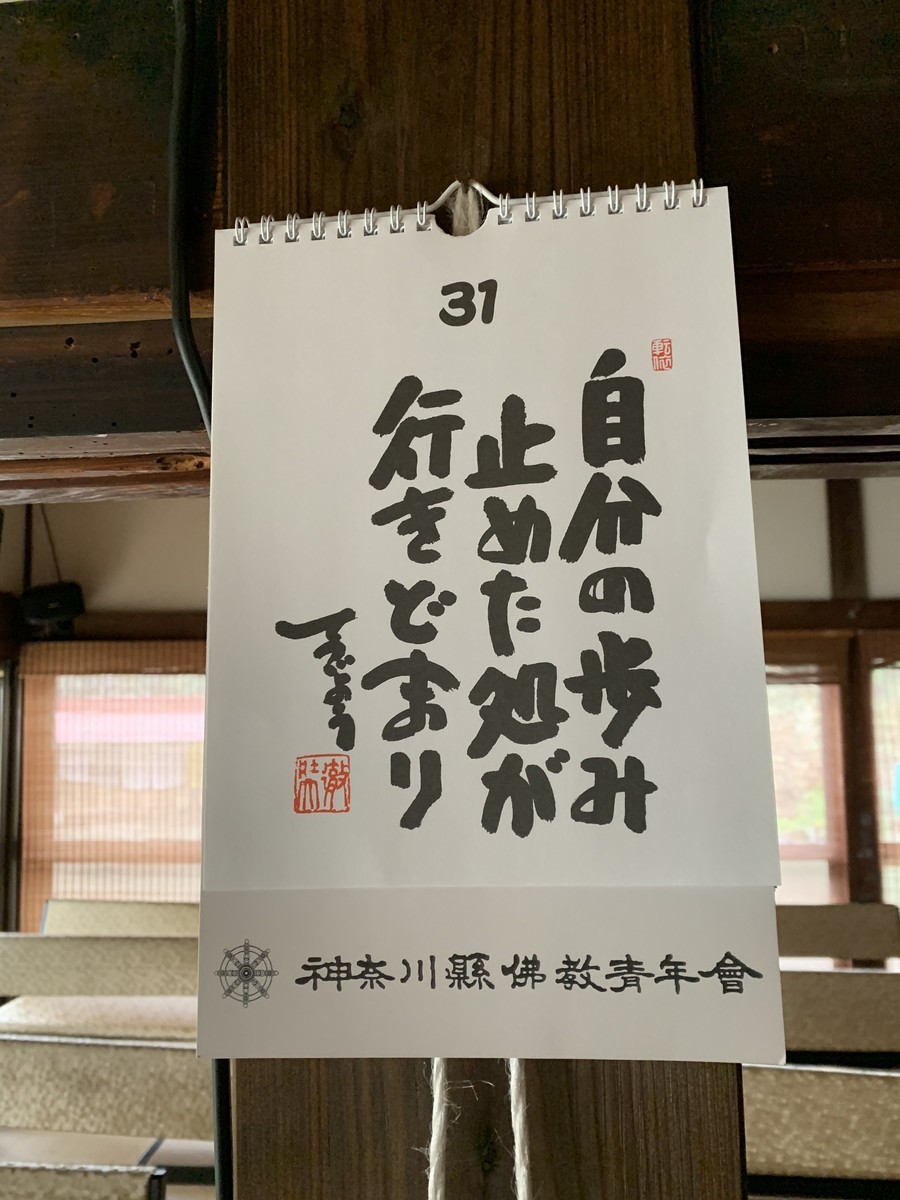 31
自分の歩み
止めた処が
行きどまり
神奈川縣佛教青年會